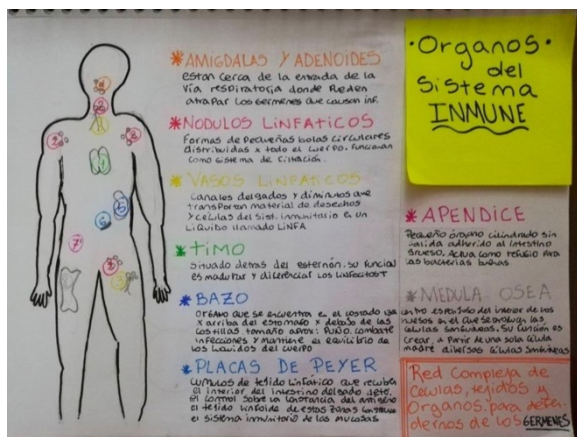 *AMIGDALAS Y ADENOIDES
estan cerca de la entrada de la
vía respiratoria donde Pueden
atrapar Los Germenes que causan inf.
*NODULOS LINFATICOS
Formas de Pequeñas bolas circulares
distribuidas x todo el cuerpo. funcionan
como sistema de filtración.
*VASOS LINFATICOS
Canales delgados y diminutos que
transportan material de desechos
y células del sist. inmunitario en un
Liquido llamado LINFA
*TIMO
Situado detras del esternón. su funcion
es madurar y diferenciar los Linfocitos T
*BAZO
Organo que se encuentra en el costado izq
x arriba del estomago x debajo de las
costillas tamaño aprox: PUÑO. combate
infecciones y mantiene el equilibrio de
los Liquidos del cuerpo
*PLACAS DE PEYER
Cumulos de tejido Linfático que recubre
el interior del intestino delgado
el control sobre la constancia del antigeno
el tejido linfoide de estas zonas
el sistema inmunitario de las mucosas
·Organos·
del
Sistema
INMUNE
*APENDICE
Pequeño órgano cilindrico sin
salida adherido al intestino
grueso. Actua como refugio para
las bacterias buenas
*MEDULA OSEA
esponjoso del interior de los
huesos en el que se producen las
células sanguineas. su funcion es
crear, a Partir de una sola célula
madre diversas células sanguineas
Red Compleja de
Celulas, tejidos y
Organos para defen-
dernos de los GERMENES